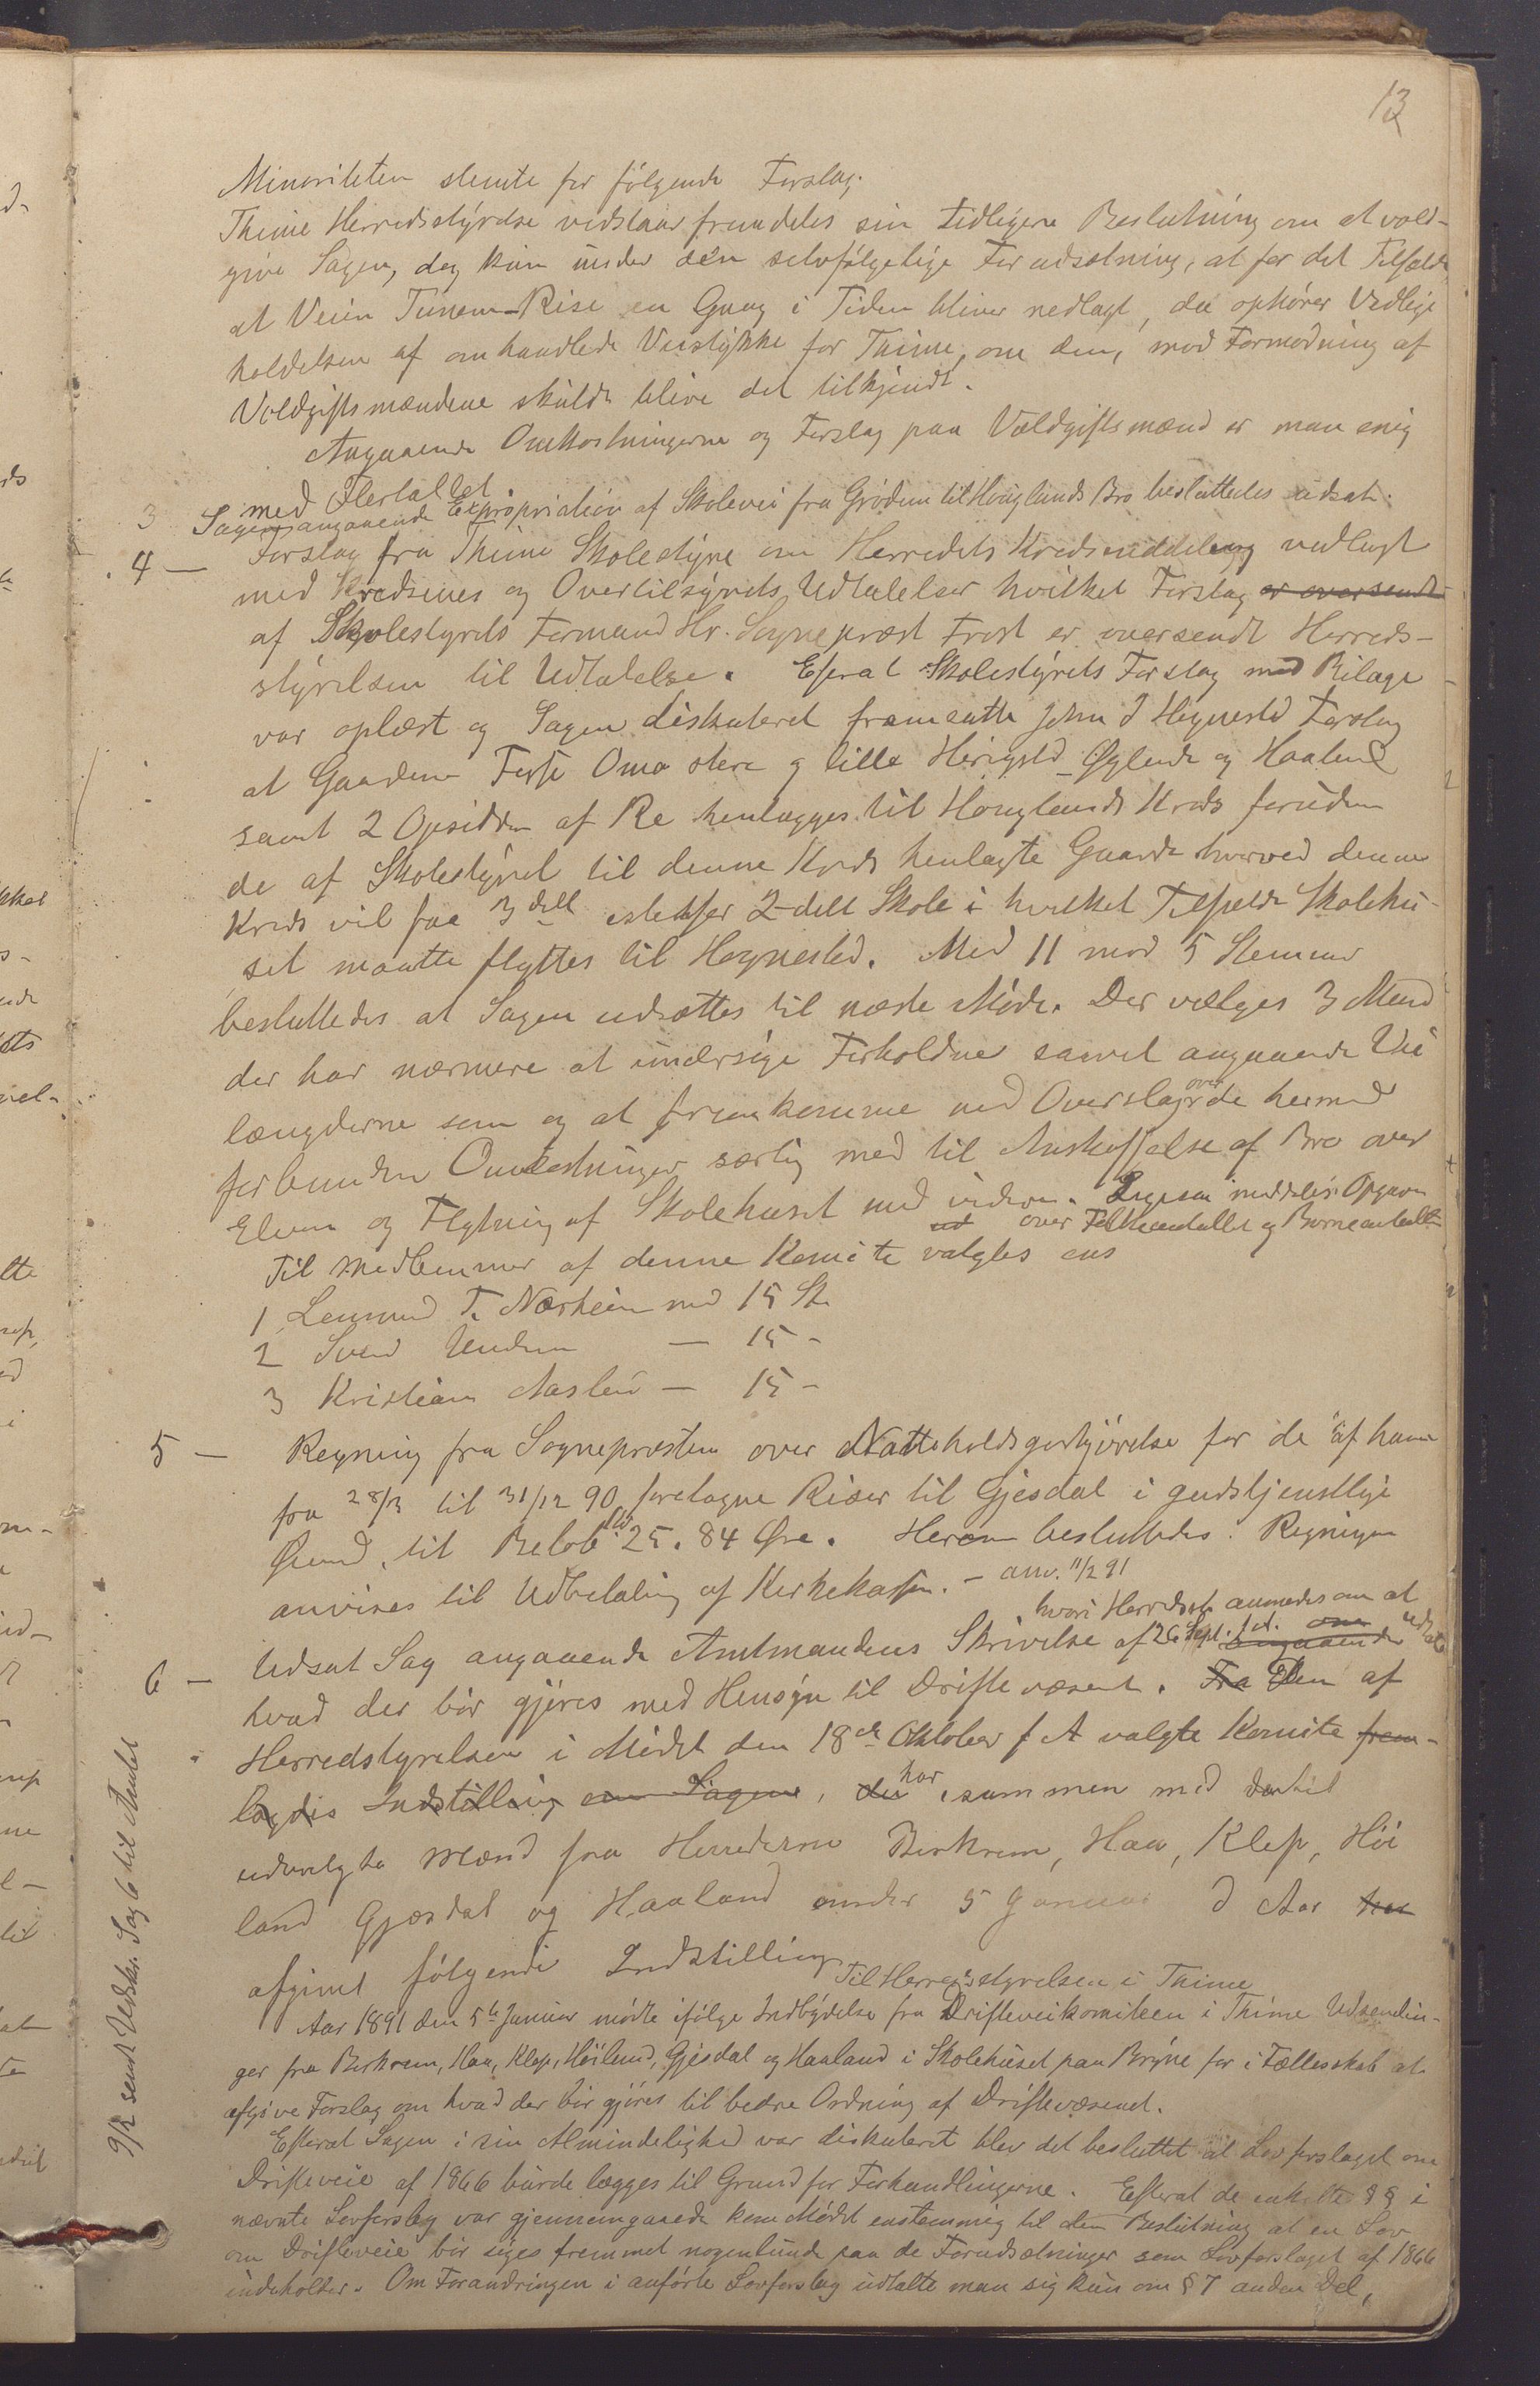 13
Minoriteten stemte for følgende Forslag.
Thime Herredsstyrelse vedstaar fremdeles sin tidligere Beslutning om at vold-
give Sagen, dog kun under den selvfølgelige Forudsætning, at for det Tilfælde
at Veien Tunem-Rise en Gang i Tiden bliver nedlagt, da ophører Vedlige
holdelsen af omhandlede Veistykke for Thime, om den, mod Formodning af
Voldgiftsmændene skulde blive det tilkjendt.
Angaaende Omkostningerne og Forslag paa Voldgiftsmænd er man enig
med Flertallet
3 Sagen angaaende Expropriation af Skolevei fra Grødem til Høiglands Bro besluttedes udsat.
4 — Forslag fra Thime Skolestyre om Herredets Kredsinddeling vedlagt
med Kredsenes og Overtilsynets Udtalelser hvilket Forslag er oversendt
af Skolestyrets Formand Hr. Sogneprest Frost er oversendt Herreds-
styrelsen til Udtalelse. Efterat Skolestyrets Forslag med Bilage
var oplæst og Sagen diskuteret fremsatte John J Hognestad Forslag
at Gaardene Fosse Oma store og lille Herigstd Øglende og Haaland
samt 2 Opsiddere af Re henlægges til Houglands Kreds foruden
de af Skolestyret til denne Kreds henlagte Gaarde hvorved denne
Kreds vil faa 3 delt istedetfor 2-delt Skole i hvilket Tilfælde Skolehu-
set maatte flyttes til Hognested. Med 11 mod 5 Stemmer
besluttedes at Sagen udsættes til næste Møde. Der vælges 3 Mænd
der har nærmere at undersøge Forholdene saavel angaaende Vei
længderne som og at fremkomme med Overslag over de hermed
forbundne Omkostninger særlig med til Anskaffelse af Bro over
Elven og Flytning af Skolehuset med videre. Ligesaa meddeles Opgave
ud over Folkeantallet og Børneantallet
Til Medlemmer af denne Komite valgtes ens
1, Lenmund T. Nærheim med 15 St.
2 Svend Undem — 15 -
3 Kristian Aasland — 15 -
5 — Regning fra Sognepresten over Natteholdsgodtgjørelse for de af ham
fra 28/3 til 31/12 90 foretagne Reiser til Gjesdal i gudstjenstlige
Øiemd, til Beløb 25. 84 Øre. Herom besluttedes: Regningen
anvises til Udbetaling af Kirkekassen. — anv. 11/2 91
hvori Herredsst. anmodes om at
6 — Udsat Sag angaaende Amtmandens Skrivelse af 26 Sept. f A. angaaende om udtale
hvad der bør gjøres med Hensyn til Driftevæsent. Fra Den af
Herredstyrelsen i Mødet den 18de Oktober f A valgte Komite frem-
lagdes Indstilling om Sagen, der har, sammen med dertil
udvalgte Mænd fra Herrederne Birkrem, Haa, Klep, Høi
land Gjesdal og Haaland under 5 Januar d Aar har
afgivet følgende Indstilling
Til Herredsstyrelsen i Thime
Aar 1891 den 5te Januar mødte ifølge Indbydelse fra Drifteveikomiteen i Thime Udsendin-
ger fra Birkrem, Haa, Klep, Høiland, Gjesdal og Haaland i Skolehuset paa Bryne for i Fællesskab at
afgive Forslag om hvad der bør gjøres til bedre Ordning af Driftevæsenet.
Efterat Sagen i sin Almindelighed var diskuteret blev det besluttet at Lovforslaget om
Drifteveie af 1866 burde lægges til Grund for Forhandlingerne. Efterat de enkelte §§ i
nævnte Lovforslag var gjennemgaaede kom Mødet enstemmig til den Beslutning at en Lov
om Drifteveie bør siges fremmet nogenlunde paa de Forudsætninger som Lovforslaget af 1866
indeholder. Om Forandringen i anførte Lovforslag udtalte man sig kun om § 7 anden Del,
9/2 sendt Uedskr. Sag 6 til Amtet